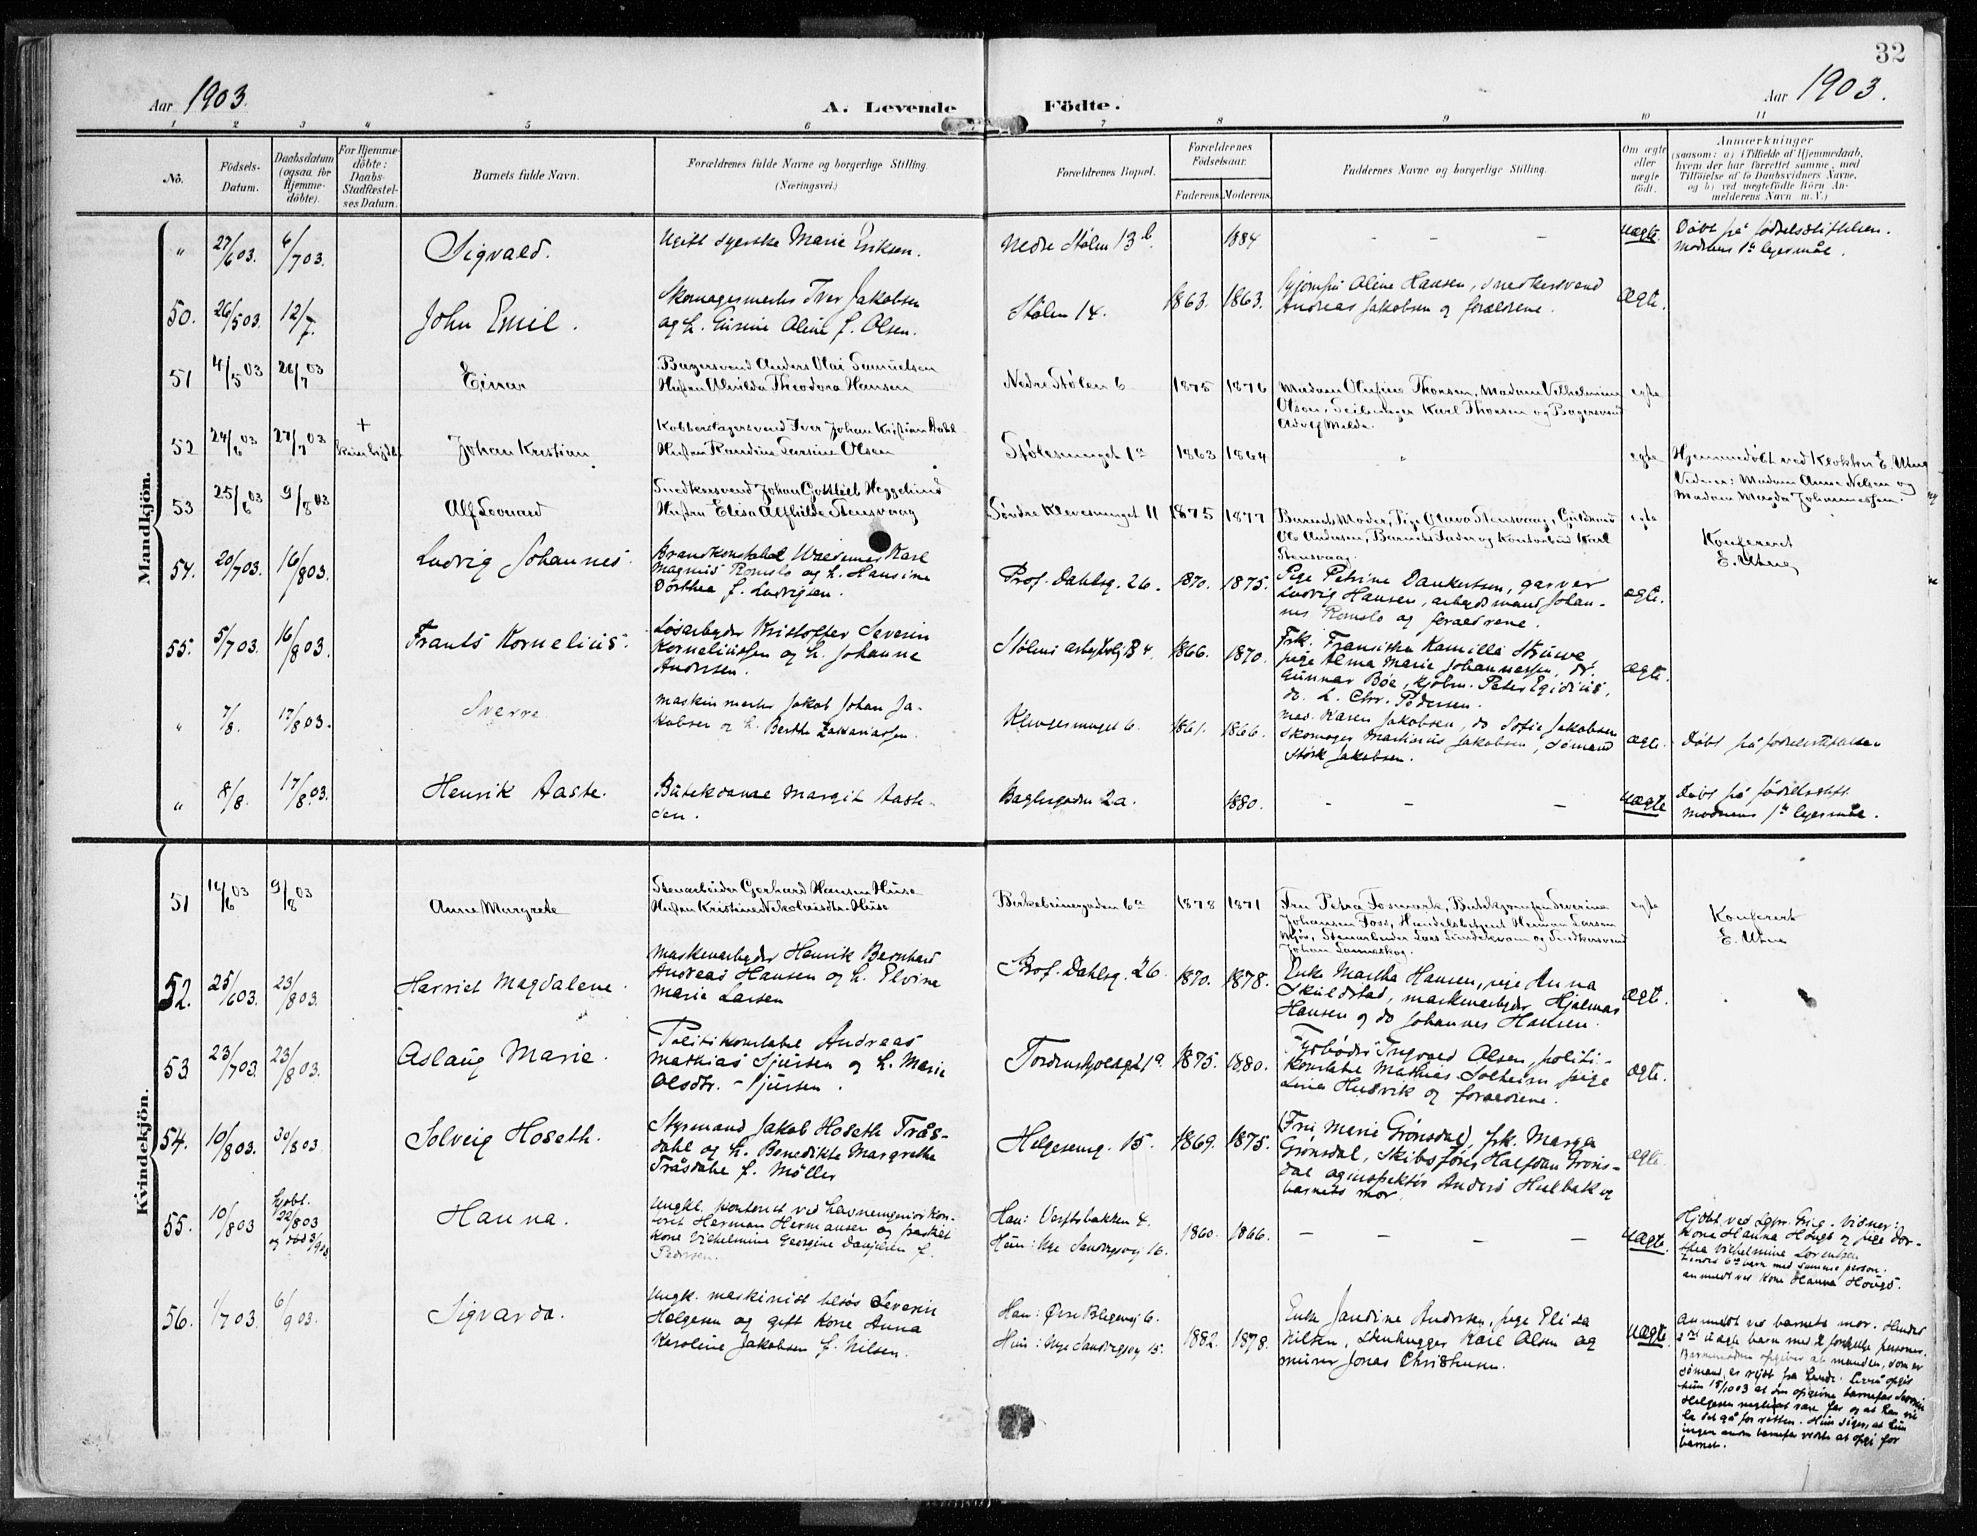 32
Aar 1903.
A. Levende Födte.
Aar 1903.
1 2 3 4 5 6 7 8 9 10 11
No.
Födsels-
Datum.
Daabsdatum
(ogsaa for
Hjemme-
döbte).
For Hjemme-
döbte:
Daabs-
Stadfæstel-
ses Datum.
Barnets fulde Navn.
Forældrenes fulde Navne og borgerlige Stilling.
(Næringsvei.)
Forældrenes Bopæl.
Forældrenes
Födselsaar.
Faderens. Moderens.
Faddernes Navne og borgerlige Stilling.
Om ægte
eller
uægte
födt.
Anmærkninger
(saasom: a) i Tilfælde af Hjemmedaab,
hvem der har forrettet samme, med
Tilföielse af to Daabsvidners Navne,
og b) ved uægtefödte Börn An-
melderens Navn m. V.)
Mandkjön.
" 27/6 03. 6/7 03. Sigvald.
Ugift syerske Marie Eriksen.
Nedre Stølen 13 b. 1884 — — — uægte.
Døbt på fødselsstiftelsen.
Moderens 1ste lejermåle.
50. 26/5 03. 12/7. John Emil.
Skomagermester Iver Jakobsen
og h. Gurine Aline f. Olsen.
Stølen 14. 1863. 1863.
Aline Hansen, snedkersvend
Andreas Jakobsen og forældrene.
ægte.
51 4/5 03 26/7 03 Einar
Bagersvend Anders Olai Samuelsen
Hustru Alvilda Theodora Hansen
Nedre Stølen 6 1875 1876
Madam Olufine Thorsen, Madam Vilhelmine
Olsen, Seilmager Karl Thorsen og Bagersvend
Adolf Melde.
egte
52 24/6 03 27/7 03 + Johan Kristian
Kobberslagersvend Iver Johan Kristian Dahl
Hustru Randine Larsine Olsen
Stølesmuget 1a 1863 1864 " egte
Hjemmedøbt ved Klokker E. Utne
Vidner: Madam Anne Nelsen og
Madam Magda Johannessen.
53 25/6 03 9/8 03 Alf Leonard
Snedkersvend Johan Gottlieb Heggelund
Hustru Elisa Alfhilde Stensvaag
Søndre Klevesmuget 11 1875 1877
Barnets Moder, Pige Olava Stensvaag, Guldsmed
Ole Andersen, Barnets Fader og Kontorbud Karl
Stensvaag.
egte
Konfereret
E. Utne
54. 20/7 03. 16/8 03. Ludvig Johannes.
Brandkonstabel Waldemar Karl
Magnus Romslo og h. Hansine
Dorthea f. Ludvigsen.
Prof. Dahlsg. 26. 1870. 1875.
Pige Petrine Dankertsen, garver
Ludvig Hansen, arbejdsmand Johan-
nes Romslo og forældrene.
ægte.
55. 5/7 03. 16/8 03. Frants Kornelius.
Løsarbejder Kristoffer Severin
Korneliussen og h. Johanne
Andersen.
Stølens arbejdbolig B 4. 1866. 1870.
Frk. Fransiska Kamilla Struwe,
pige Alma Marie Johannessen, dr.
Gunnar Bøe, kjøbm. Peter Egidius,
do. L. Chr. Pedersen.
ægte.
" 7/8. 17/8 03. Sverre
Maskinmester Jakob Johan Ja-
kobsen og h. Berthe Zakariassen.
Klevesmuget 6. 1861. 1866.
Mad. Karen Jakobsen, do Sofie Jakobsen
Skomager Martinius Jakobsen, sømand
Støsk Jakobsen.
ægte.
Døbt på fødselsstiftelsen
" 8/8. 17/8 03. Henrik Aaste.
Butikdame Margit Aaste-
den.
Baglergaden 2a. 1880. — — — uægte
Døbt på fødselsstift.
Moderens 1ste lejermåle.
Kvindekjön.
51 14/6 03 9/8 03 Anne Margrete
Stenarbeider Gerhard Hansen Huse
Hustru Kristine Nikolaisdtr. Huse
Birkebeinergaden 6a 1878 1871
Fru Petra Fosmark, Butikjomfru Severine
Johansen Foss, Handelsbetjent Herman Larsen
Stenarbeider Lars Sundekvam og Snedkersvend
Johan
egte
Konfereret
E. Utne
52. 25/6 03. 23/8 03. Harriet Magdalene.
Maskinarbejder Henrik Bernhard
Andreas Hansen og h. Elvine
Marie Larsen
Prof. Dahlsg. 26. 1870. 1878.
Enke Martha Hansen, pige Anna
Skuldstad, maskinarbejder Hjalmar
Hansen og do Johannes Hansen.
ægte.
53 23/7 03. 23/8 03. Aslaug Marie.
Politikonstabel Andreas
Mathias Sjursen og h. Marie
Olsdtr. Sjursen.
Tordenskjoldsgt 1a. 1875. 1880.
Fyrbøder Ingvald Olsen, politi-
konstabel Mathias Solheim, pige
Lina Husvik og forældrene.
ægte.
54. 10/8 03. 30/8 03. Solveig Hoseth.
Styrmand Jakob Hoseth Trås-
dahl og h. Benedikte Margrethe
Tråsdahl f. Møller
Helgesensg. 15. 1869. 1875.
(Fru Marie Grønsdal), frk. Marga
Grønsdal, Skibsfører Halfdan Grøns-
dal og inspektør Anders Hulbak og
barnets mor.
ægte.
55. 10/8 03 hjdøbt. 22/8 03 og død 3/9 03 Hanna.
Ungkl. kontorist ved havneingeniørkon-
toret Herman Hermansen og fraskilt
kone Vilhelmine Georgine Danjelsen f.
Pedersen.
Han: Verftsbakken 4.
Hun: Nye Sandviksvej 16.
1860. 1866. — — — — uægte.
Hjdbt ved Sgpr. Grieg. Vidner:
Kone Hanna Hougs og pige Dor-
thea Vilhelmine Lorentzen.
Hendes 6te barn med samme person.
Anmeldt ved kone Hanna Hougs.
56. 1/7 03. 6/9 03. Sigvarda.
Ungk. maskinist Severin
Helgesen og gift kone Anna
Karoline Jakobsen f. Nilsen.
Han: Øvre Blegevej 6.
Hun: Nye Sandviksvej 15.
1882. 1878.
Enke Jandine Andersen, pige Elisa
Nilsen, stenhugger Karl Olsen og
murer Jonas Christensen.
uægte.
Anmeldt ved barnets mor. Hendes
2det uægte barn med 2 forskjellige personer.
Barnemoderen opgiver at manden, som er
sømand, er rejst fra hende. Senere opgit
hun 15/10 03 at den opgivne barnefar Severin
Helgesen negtet at være far og at han vil
la det gå for retten. Hun siger, at hun
ingen anden barnefar vedste at opgi for
barnet.